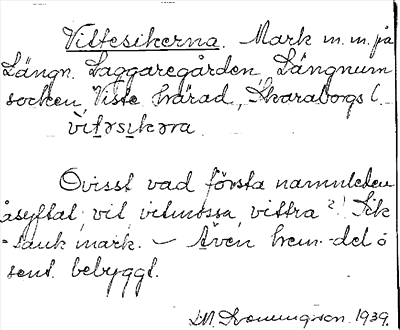 Vittesikerna. Mark m.m. på
Långn. Laggaregården, Långnum
socken, Viste härad, Skaraborgs l.
vitəsikəra
Ovisst vad första namnleden
åsyftar, vit vitmossa, vittra?! Sik
= sank mark. – Även hem-del ö
sent bebyggt.
1939.